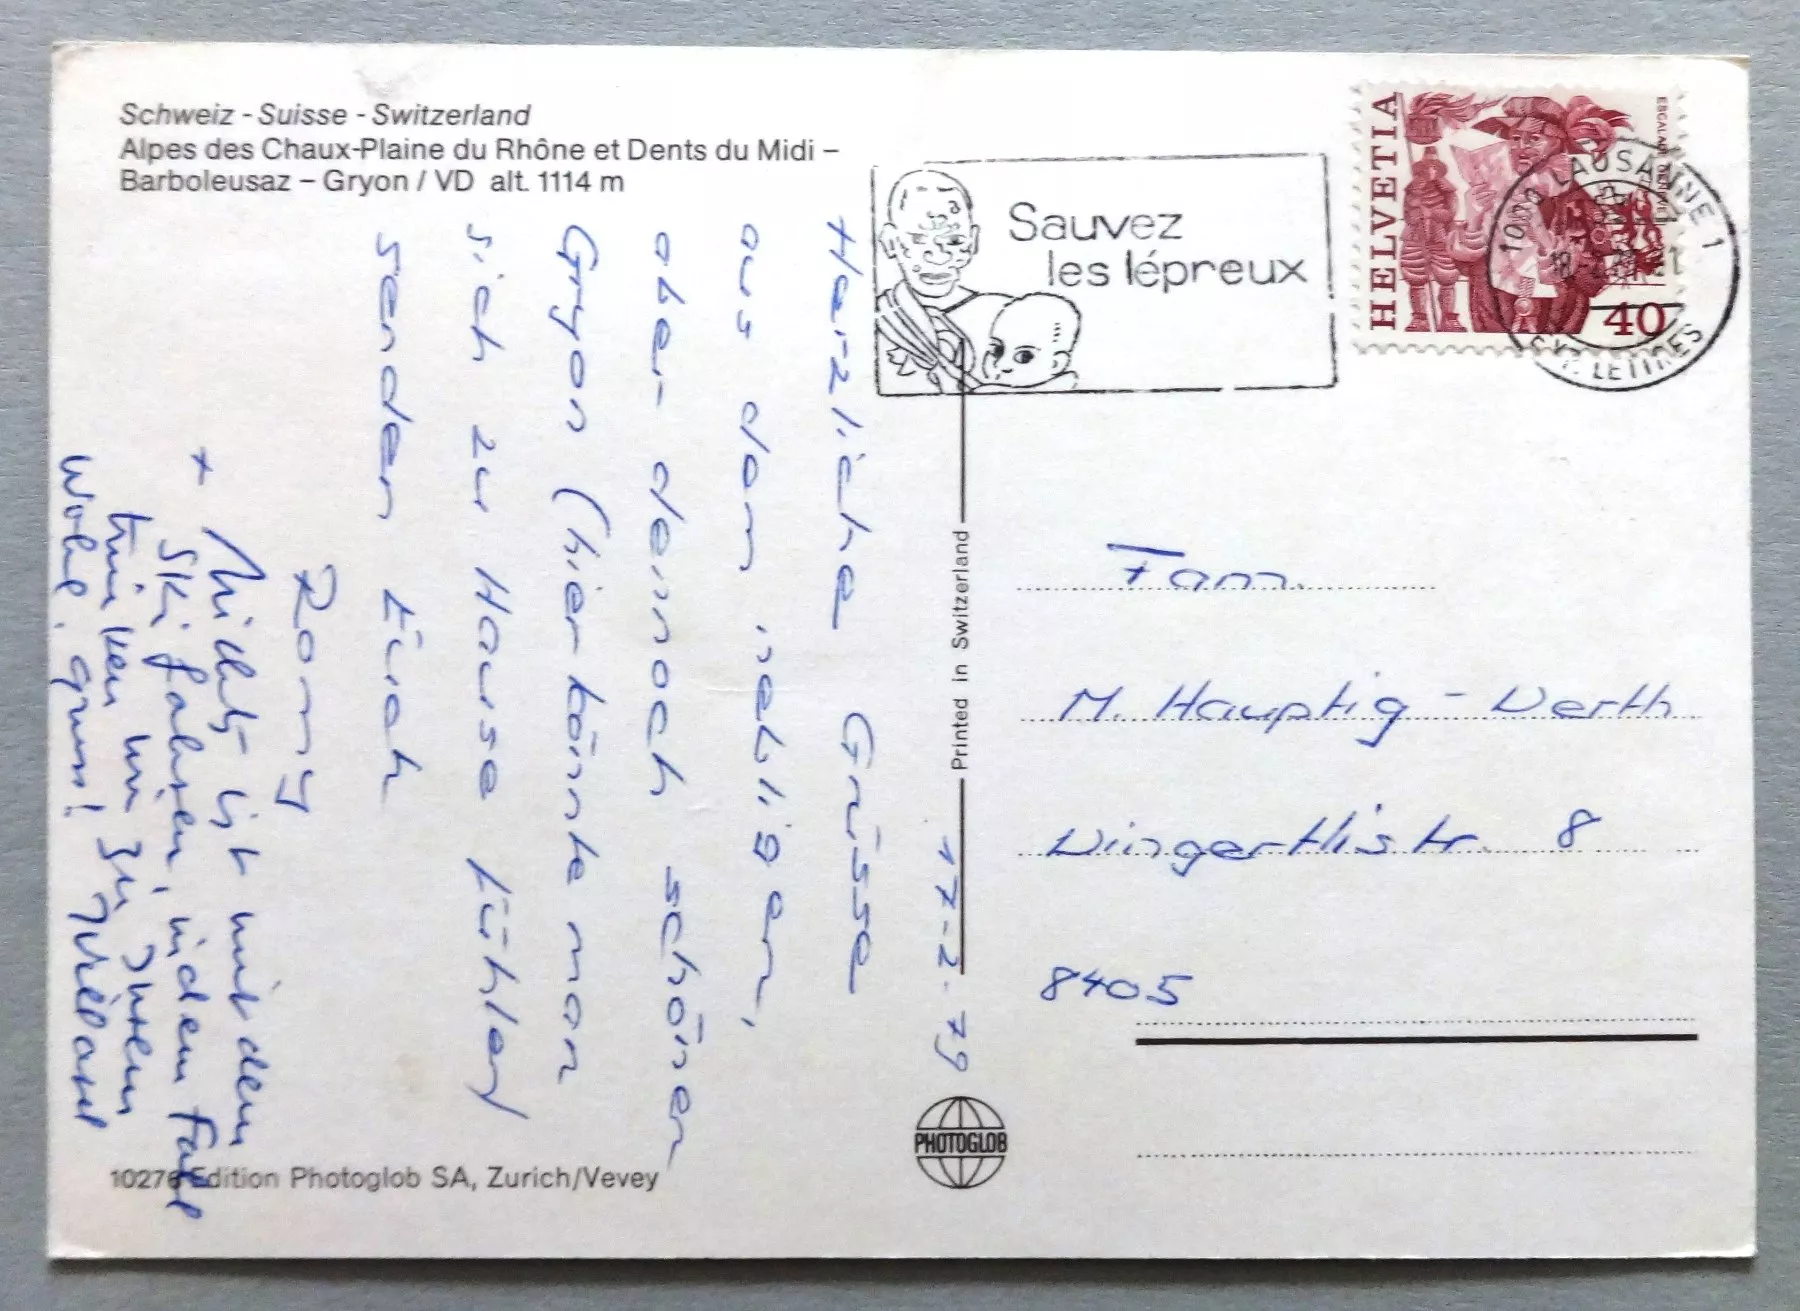 Schweiz - Suisse - Switzerland
Alpes des Chaux-Plaine du Rhône et Dents du Midi –
Barboleusaz – Gryon / VD alt. 1114 m
Sauvez
les lépreux
HELVETIA
ESCALADE GENÈVE
40
1000 LAUSANNE 1
EXP. LETTRES
17-2-79
Herzliche Grüsse
aus dem nebligen,
aber dennoch schönen
Gryon (hier könnte man
sich zu Hause fühlen)
senden Euch
Romy
+ Nichts ist mit dem
Skifahren, in dem Fall
trinken wir
Wohl,
Printed in Switzerland
Fam.
M. Hauptig - Werth
Wingertlistr. 8
8405
PHOTOGLOB
10276 Edition Photoglob SA, Zurich/Vevey